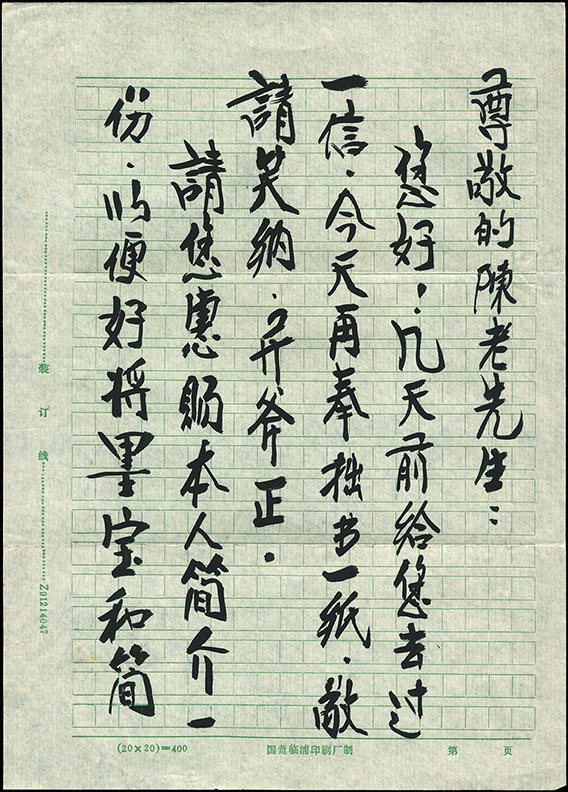 尊敬的陳老先生：
您好！几天前给您去过
一信．今天再奉拙书一纸．敬
請笑纳．并斧正．
請您惠赐本人简介一
份．以便好将墨宝和简
装订线
Z91214047
(20×20)=400 国营临浦印刷厂制 第 页